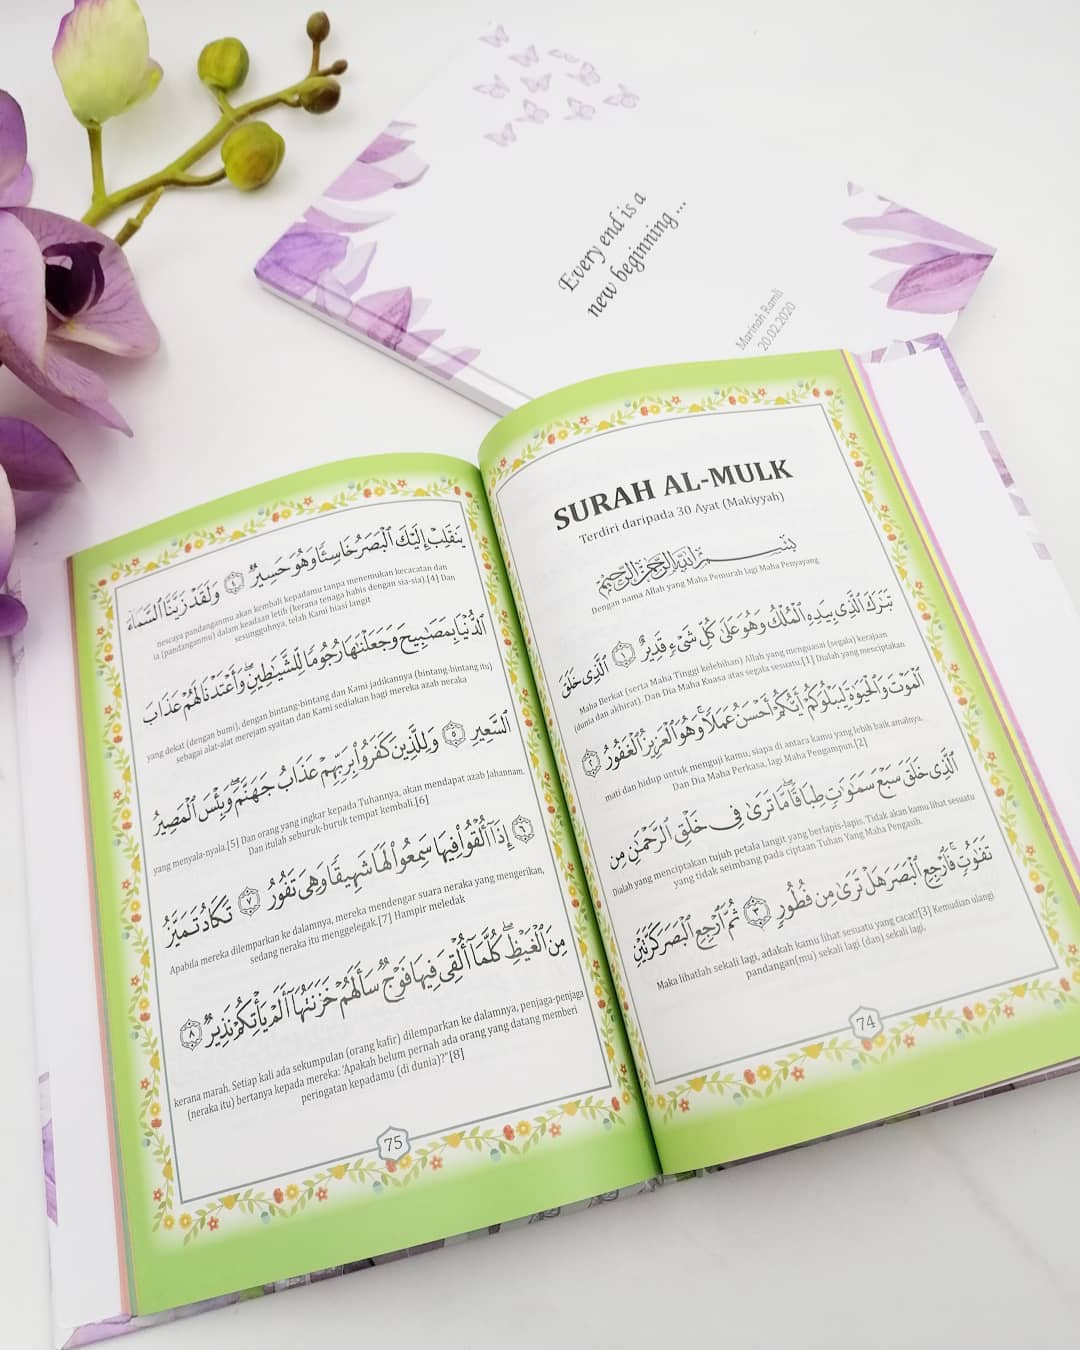 Every end is a
new beginning ...
Marinah Ramli
20.02.2020
SURAH AL-MULK
Terdiri daripada 30 Ayat (Makiyyah)
بِسْمِ اللَّهِ الرَّحْمَٰنِ الرَّحِيمِ
Dengan nama Allah yang Maha Pemurah lagi Maha Penyayang
تَبَٰرَكَ ٱلَّذِى بِيَدِهِ ٱلْمُلْكُ وَهُوَ عَلَىٰ كُلِّ شَىْءٍ قَدِيرٌ ١ ٱلَّذِى خَلَقَ
Maha Berkat (serta Maha Tinggi kelebihan) Allah yang menguasai (segala) kerajaan
(dunia dan akhirat). Dan Dia Maha Kuasa atas segala sesuatu.[1] Dialah yang menciptakan
ٱلْمَوْتَ وَٱلْحَيَوٰةَ لِيَبْلُوَكُمْ أَيُّكُمْ أَحْسَنُ عَمَلًا ۚ وَهُوَ ٱلْعَزِيزُ ٱلْغَفُورُ ٢
mati dan hidup untuk menguji kamu, siapa di antara kamu yang lebih baik amalnya.
Dan Dia Maha Perkasa, lagi Maha Pengampun.[2]
ٱلَّذِى خَلَقَ سَبْعَ سَمَٰوَٰتٍ طِبَاقًا ۖ مَّا تَرَىٰ فِى خَلْقِ ٱلرَّحْمَٰنِ مِن
Dialah yang menciptakan tujuh petala langit yang berlapis-lapis. Tidak akan kamu lihat sesuatu
yang tidak seimbang pada ciptaan Tuhan Yang Maha Pengasih.
تَفَٰوُتٍ ۖ فَٱرْجِعِ ٱلْبَصَرَ هَلْ تَرَىٰ مِن فُطُورٍ ٣ ثُمَّ ٱرْجِعِ ٱلْبَصَرَ كَرَّتَيْنِ
Maka lihatlah sekali lagi, adakah kamu lihat sesuatu yang cacat?[3] Kemudian ulangi
pandangan(mu) sekali lagi (dan) sekali lagi,
74
يَنقَلِبْ إِلَيْكَ ٱلْبَصَرُ خَاسِئًا وَهُوَ حَسِيرٌ ٤ وَلَقَدْ زَيَّنَّا ٱلسَّمَآءَ
nescaya pandanganmu akan kembali kepadamu tanpa menemukan kecacatan dan
ia (pandanganmu) dalam keadaan letih (kerana tenaga habis dengan sia-sia).[4] Dan
sesungguhnya, telah Kami hiasi langit
ٱلدُّنْيَا بِمَصَٰبِيحَ وَجَعَلْنَٰهَا رُجُومًا لِّلشَّيَٰطِينِ ۖ وَأَعْتَدْنَا لَهُمْ عَذَابَ
yang dekat (dengan bumi), dengan bintang-bintang dan Kami jadikannya (bintang-bintang itu)
sebagai alat-alat merejam syaitan dan Kami sediakan bagi mereka azab neraka
ٱلسَّعِيرِ ٥ وَلِلَّذِينَ كَفَرُوا۟ بِرَبِّهِمْ عَذَابُ جَهَنَّمَ ۖ وَبِئْسَ ٱلْمَصِيرُ
yang menyala-nyala.[5] Dan orang yang ingkar kepada Tuhannya, akan mendapat azab Jahannam.
Dan itulah seburuk-buruk tempat kembali.[6]
٦ إِذَآ أُلْقُوا۟ فِيهَا سَمِعُوا۟ لَهَا شَهِيقًا وَهِىَ تَفُورُ ٧ تَكَادُ تَمَيَّزُ
Apabila mereka dilemparkan ke dalamnya, mereka mendengar suara neraka yang mengerikan,
sedang neraka itu menggelegak.[7] Hampir meledak
مِنَ ٱلْغَيْظِ ۖ كُلَّمَآ أُلْقِىَ فِيهَا فَوْجٌ سَأَلَهُمْ خَزَنَتُهَآ أَلَمْ يَأْتِكُمْ نَذِيرٌ ٨
kerana marah. Setiap kali ada sekumpulan (orang kafir) dilemparkan ke dalamnya, penjaga-penjaga
(neraka itu) bertanya kepada mereka: 'Apakah belum pernah ada orang yang datang memberi
peringatan kepadamu (di dunia)?"[8]
75